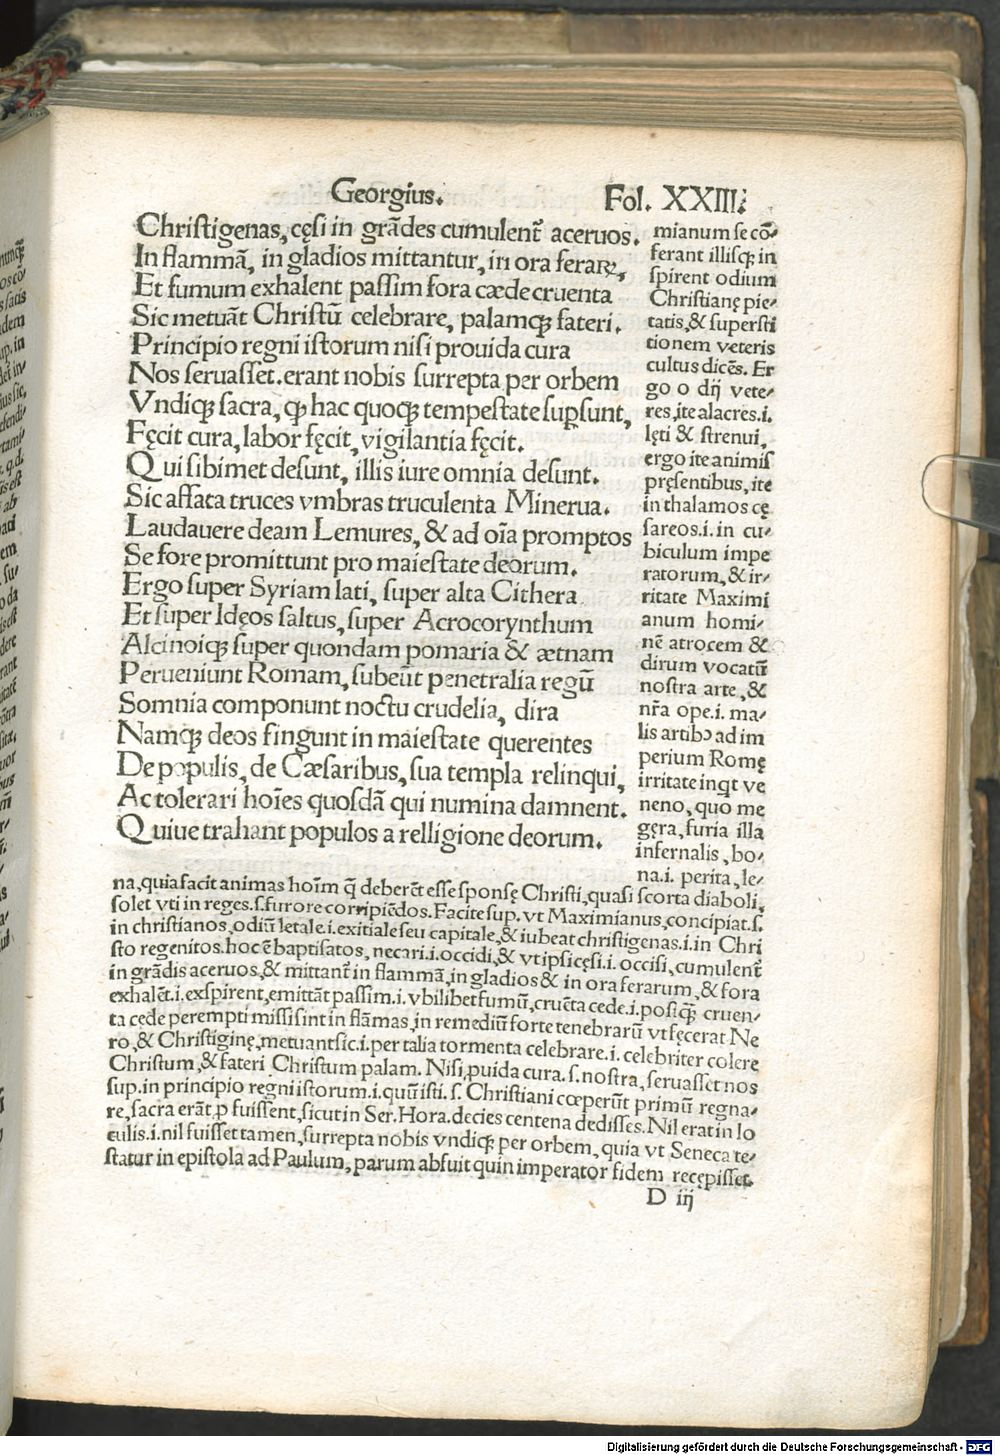 Georgius. Fol. XXIII.
Christigenas, cęsi in grãdes cumulent᷑ aceruos.
In flammã, in gladios mittantur, in ora ferarꝝ,
Et fumum exhalent passim fora cæde cruenta
Sic metuãt Christũ celebrare, palamqꝫ fateri.
Principio regni istorum nisi prouida cura
Nos seruasset. erant nobis surrepta per orbem
Vndiqꝫ sacra, qđ hac quoqꝫ tempestate suꝑsunt,
Fęcit cura, labor fęcit, vigilantia fęcit.
Qui sibimet desunt, illis iure omnia desunt.
Sic affata truces vmbras truculenta Minerua.
Laudauere deam Lemures, & ad oĩa promptos
Se fore promittunt pro maiestate deorum.
Ergo super Syriam lati, super alta Cithera
Et super Idęos saltus, super Acrocorynthum
Alcinoiqꝫ super quondam pomaria & ætnam
Perueniunt Romam, subeũt penetralia regũ
Somnia componunt noctu crudelia, dira
Namqꝫ deos fingunt in maiestate querentes
De populis, de Cæsaribus, sua templa relinqui,
Ac tolerari hoĩes quosdã qui numina damnent.
Quiue trahant populos a relligione deorum.
mianum se cõ-
ferant illisqꝫ in
spirent odium
Christianę pie-
tatis, & supersti
tionem veteris
cultus dicẽs. Er
go o dij vete-
res, ite alacres .i.
lęti & strenui,
ergo ite animis
pręsentibus, ite
in thalamos cę
sareos .i. in cu-
biculum impe
ratorum, & ir-
ritate Maximi
anum homi-
nẽ atrocem &
dirum vocatũ
nostra arte, &
nr̃a ope .i. ma-
lis artibꝰ ad im
perium Romę
irritate inqt ve
neno, quo me
gęra, furia illa
infernalis, bo-
na .i. perita, le-
na, quia facit animas hoĩm q̃ deberẽt esse sponsę Christi, quasi scorta diaboli,
solet vti in reges .s. furore corripiẽdos. Facite sup. vt Maximianus, concipiat .s.
in christianos, odiũ letale .i. exitiale seu capitale, & iubeat christigenas .i. in Chri
sto regenitos. hoc ẽ baptisatos, necari .i. occidi, & vt ipsi cęsi .i. occisi, cumulent᷑
in grãdis aceruos, & mittant᷑ in flammã, in gladios & in ora ferarum, & fora
exhalẽt .i. exspirent, emittãt passim .i. vbilibet fumũ, cruẽta cede .i. postqꝫ cruen-
ta cęde perempti missi sint in flãmas, in remediũ forte tenebrarũ vt fęcerat Ne
ro, & Christiginę, metuant sic .i. per talia tormenta celebrare .i. celebriter colere
Christum, & fateri Christum palam. Nisi, ꝓuida cura .s. nostra, seruasset nos
sup. in principio regni istorum .i. quũ isti .s. Christiani cœperũt primũ regna-
re, sacra erãt ꝓ fuissent, sicut in Ser. Hora. decies centena dedisses. Nil erat in lo
culis .i. nil fuisset tamen, surrepta nobis vndiqꝫ per orbem, quia vt Seneca te-
statur in epistola ad Paulum, parum abfuit quin imperator fidem recępisset.
D iij
Digitalisierung gefördert durch die Deutsche Forschungsgemeinschaft - DFG